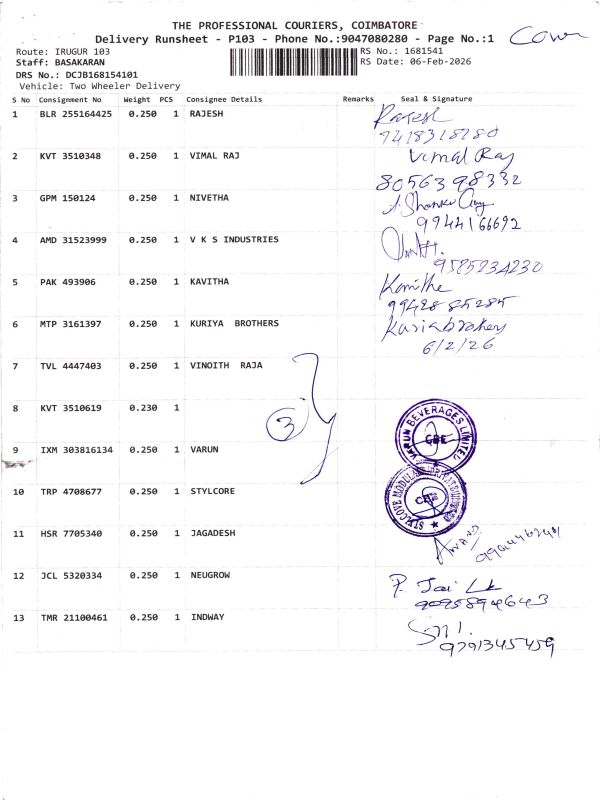 THE PROFESSIONAL COURIERS, COIMBATORE
Delivery Runsheet - P103 - Phone No.:9047080280 - Page No.:1
Route: IRUGUR 103
RS No.: 1681541
Staff: BASAKARAN
RS Date: 06-Feb-2026
DRS No.: DCJB168154101
Vehicle: Two Wheeler Delivery
S No Consignment No Weight PCS Consignee Details Remarks Seal & Signature
1 BLR 255164425 0.250 1 RAJESH Rajesh
7418318280
2 KVT 3510348 0.250 1 VIMAL RAJ Vimal Raj
8056398332
3 GPM 150124 0.250 1 NIVETHA
9944166692
4 AMD 31523999 0.250 1 V K S INDUSTRIES
9585234230
5 PAK 493906 0.250 1 KAVITHA
9942885285
6 MTP 3161397 0.250 1 KURIYA BROTHERS
6/2/26
7 TVL 4447403 0.250 1 VINOITH RAJA
8 KVT 3510619 0.230 1
3
VARUN BEVERAGES LIMITED
9 IXM 303816134 0.250 1 VARUN
10 TRP 4708677 0.250 1 STYLCORE
11 HSR 7705340 0.250 1 JAGADESH
12 JCL 5320334 0.250 1 NEUGROW
13 TMR 21100461 0.250 1 INDWAY
9791345459